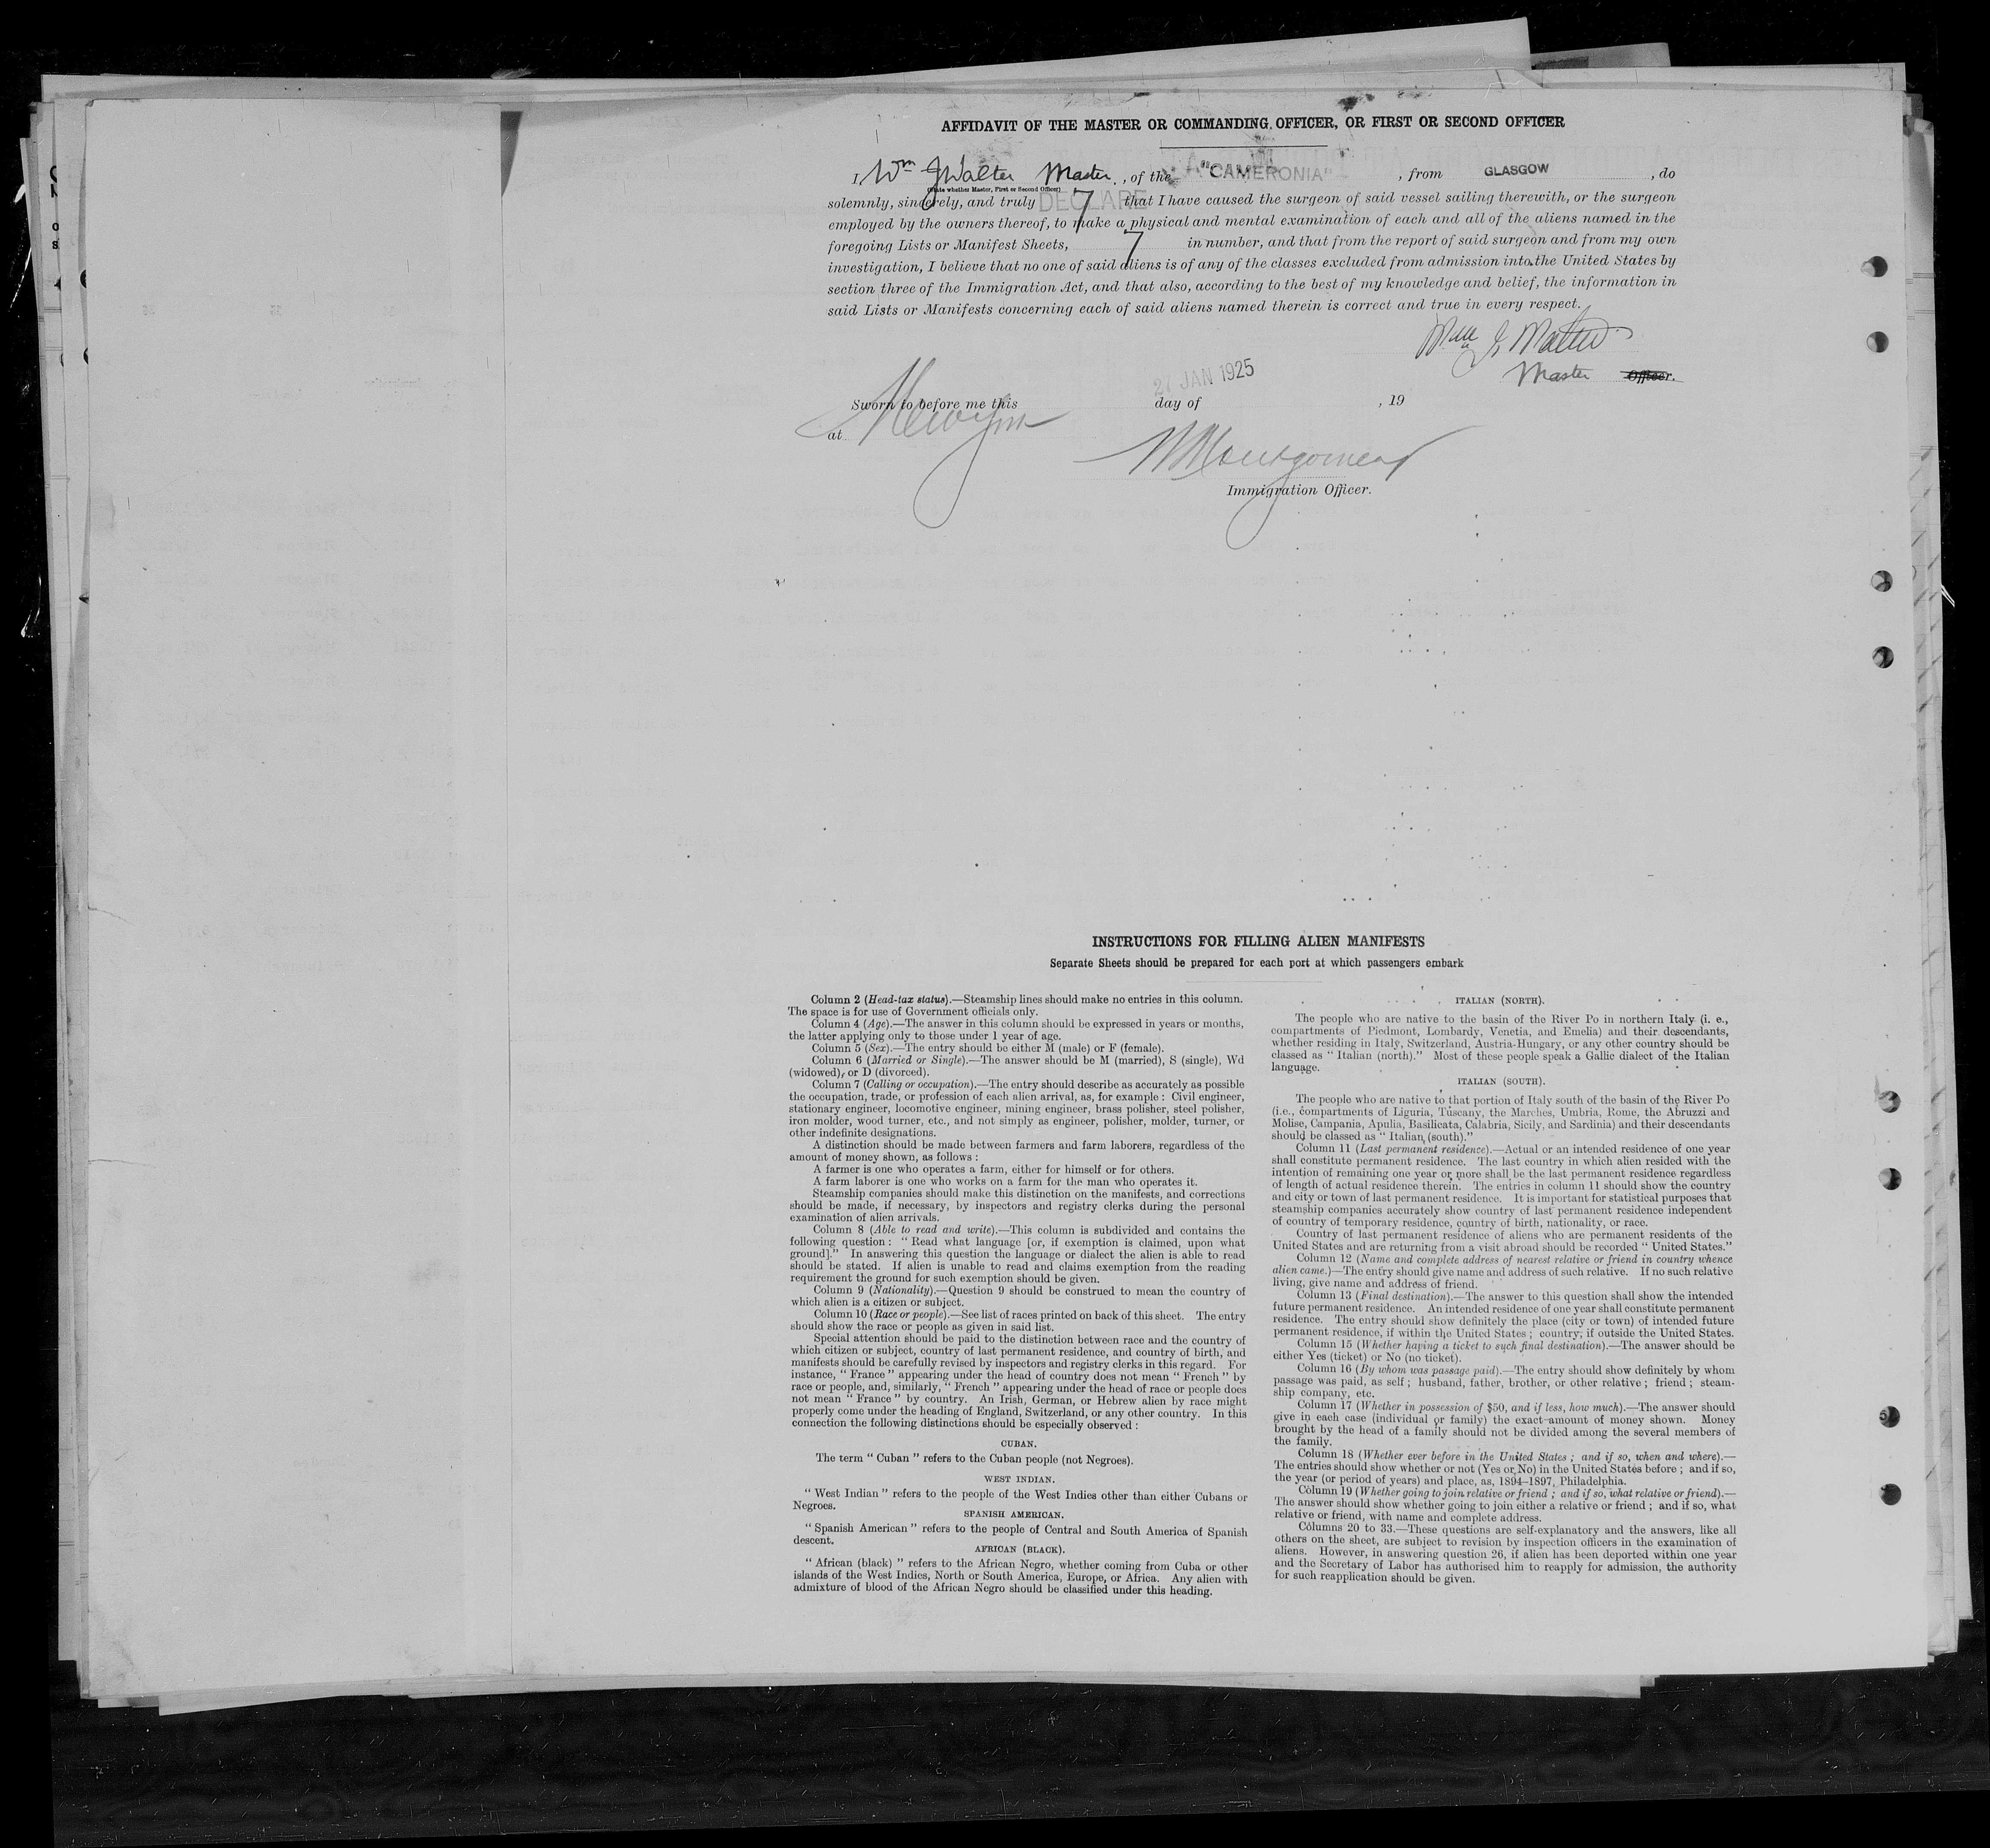 AFFIDAVIT OF THE MASTER OR COMMANDING OFFICER, OR FIRST OR SECOND OFFICER
I, Wm J Walter Master, of the "CAMERONIA", from GLASGOW, do
(State whether Master, First or Second Officer)
solemnly, sincerely, and truly DECLARE that I have caused the surgeon of said vessel sailing therewith, or the surgeon
employed by the owners thereof, to make a physical and mental examination of each and all of the aliens named in the
foregoing Lists or Manifest Sheets, 7 in number, and that from the report of said surgeon and from my own
investigation, I believe that no one of said aliens is of any of the classes excluded from admission into the United States by
section three of the Immigration Act, and that also, according to the best of my knowledge and belief, the information in
said Lists or Manifests concerning each of said aliens named therein is correct and true in every respect.
Master Officer.
27 JAN 1925
Sworn to before me this day of , 19
at
Montgomery
Immigration Officer.
INSTRUCTIONS FOR FILLING ALIEN MANIFESTS
Separate Sheets should be prepared for each port at which passengers embark
Column 2 (Head-tax status).—Steamship lines should make no entries in this column.
The space is for use of Government officials only.
Column 4 (Age).—The answer in this column should be expressed in years or months,
the latter applying only to those under 1 year of age.
Column 5 (Sex).—The entry should be either M (male) or F (female).
Column 6 (Married or Single).—The answer should be M (married), S (single), Wd
(widowed), or D (divorced).
Column 7 (Calling or occupation).—The entry should describe as accurately as possible
the occupation, trade, or profession of each alien arrival, as, for example : Civil engineer,
stationary engineer, locomotive engineer, mining engineer, brass polisher, steel polisher,
iron molder, wood turner, etc., and not simply as engineer, polisher, molder, turner, or
other indefinite designations.
A distinction should be made between farmers and farm laborers, regardless of the
amount of money shown, as follows :
A farmer is one who operates a farm, either for himself or for others.
A farm laborer is one who works on a farm for the man who operates it.
Steamship companies should make this distinction on the manifests, and corrections
should be made, if necessary, by inspectors and registry clerks during the personal
examination of alien arrivals.
Column 8 (Able to read and write).—This column is subdivided and contains the
following question : " Read what language [or, if exemption is claimed, upon what
ground]." In answering this question the language or dialect the alien is able to read
should be stated. If alien is unable to read and claims exemption from the reading
requirement the ground for such exemption should be given.
Column 9 (Nationality).—Question 9 should be construed to mean the country of
which alien is a citizen or subject.
Column 10 (Race or people).—See list of races printed on back of this sheet. The entry
should show the race or people as given in said list.
Special attention should be paid to the distinction between race and the country of
which citizen or subject, country of last permanent residence, and country of birth, and
manifests should be carefully revised by inspectors and registry clerks in this regard. For
instance, " France " appearing under the head of country does not mean " French " by
race or people, and, similarly, " French " appearing under the head of race or people does
not mean " France " by country. An Irish, German, or Hebrew alien by race might
properly come under the heading of England, Switzerland, or any other country. In this
connection the following distinctions should be especially observed :
CUBAN.
The term " Cuban " refers to the Cuban people (not Negroes).
WEST INDIAN.
" West Indian " refers to the people of the West Indies other than either Cubans or
Negroes.
SPANISH AMERICAN.
" Spanish American " refers to the people of Central and South America of Spanish
descent.
AFRICAN (BLACK).
" African (black) " refers to the African Negro, whether coming from Cuba or other
islands of the West Indies, North or South America, Europe, or Africa. Any alien with
admixture of blood of the African Negro should be classified under this heading.
ITALIAN (NORTH).
The people who are native to the basin of the River Po in northern Italy (i. e.,
compartments of Piedmont, Lombardy, Venetia, and Emelia) and their descendants,
whether residing in Italy, Switzerland, Austria-Hungary, or any other country should be
classed as " Italian (north)." Most of these people speak a Gallic dialect of the Italian
language.
ITALIAN (SOUTH).
The people who are native to that portion of Italy south of the basin of the River Po
(i.e., compartments of Liguria, Tuscany, the Marches, Umbria, Rome, the Abruzzi and
Molise, Campania, Apulia, Basilicata, Calabria, Sicily, and Sardinia) and their descendants
should be classed as " Italian (south)."
Column 11 (Last permanent residence).—Actual or an intended residence of one year
shall constitute permanent residence. The last country in which alien resided with the
intention of remaining one year or more shall be the last permanent residence regardless
of length of actual residence therein. The entries in column 11 should show the country
and city or town of last permanent residence. It is important for statistical purposes that
steamship companies accurately show country of last permanent residence independent
of country of temporary residence, country of birth, nationality, or race.
Country of last permanent residence of aliens who are permanent residents of the
United States and are returning from a visit abroad should be recorded " United States."
Column 12 (Name and complete address of nearest relative or friend in country whence
alien came.)—The entry should give name and address of such relative. If no such relative
living, give name and address of friend.
Column 13 (Final destination).—The answer to this question shall show the intended
future permanent residence. An intended residence of one year shall constitute permanent
residence. The entry should show definitely the place (city or town) of intended future
permanent residence, if within the United States ; country, if outside the United States.
Column 15 (Whether having a ticket to such final destination).—The answer should be
either Yes (ticket) or No (no ticket).
Column 16 (By whom was passage paid).—The entry should show definitely by whom
passage was paid, as self ; husband, father, brother, or other relative ; friend ; steam-
ship company, etc.
Column 17 (Whether in possession of $50, and if less, how much).—The answer should
give in each case (individual or family) the exact amount of money shown. Money
brought by the head of a family should not be divided among the several members of
the family.
Column 18 (Whether ever before in the United States ; and if so, when and where).—
The entries should show whether or not (Yes or No) in the United States before ; and if so,
the year (or period of years) and place, as, 1894–1897, Philadelphia.
Column 19 (Whether going to join relative or friend ; and if so, what relative or friend).—
The answer should show whether going to join either a relative or friend ; and if so, what
relative or friend, with name and complete address.
Columns 20 to 33.—These questions are self-explanatory and the answers, like all
others on the sheet, are subject to revision by inspection officers in the examination of
aliens. However, in answering question 26, if alien has been deported within one year
and the Secretary of Labor has authorised him to reapply for admission, the authority
for such reapplication should be given.